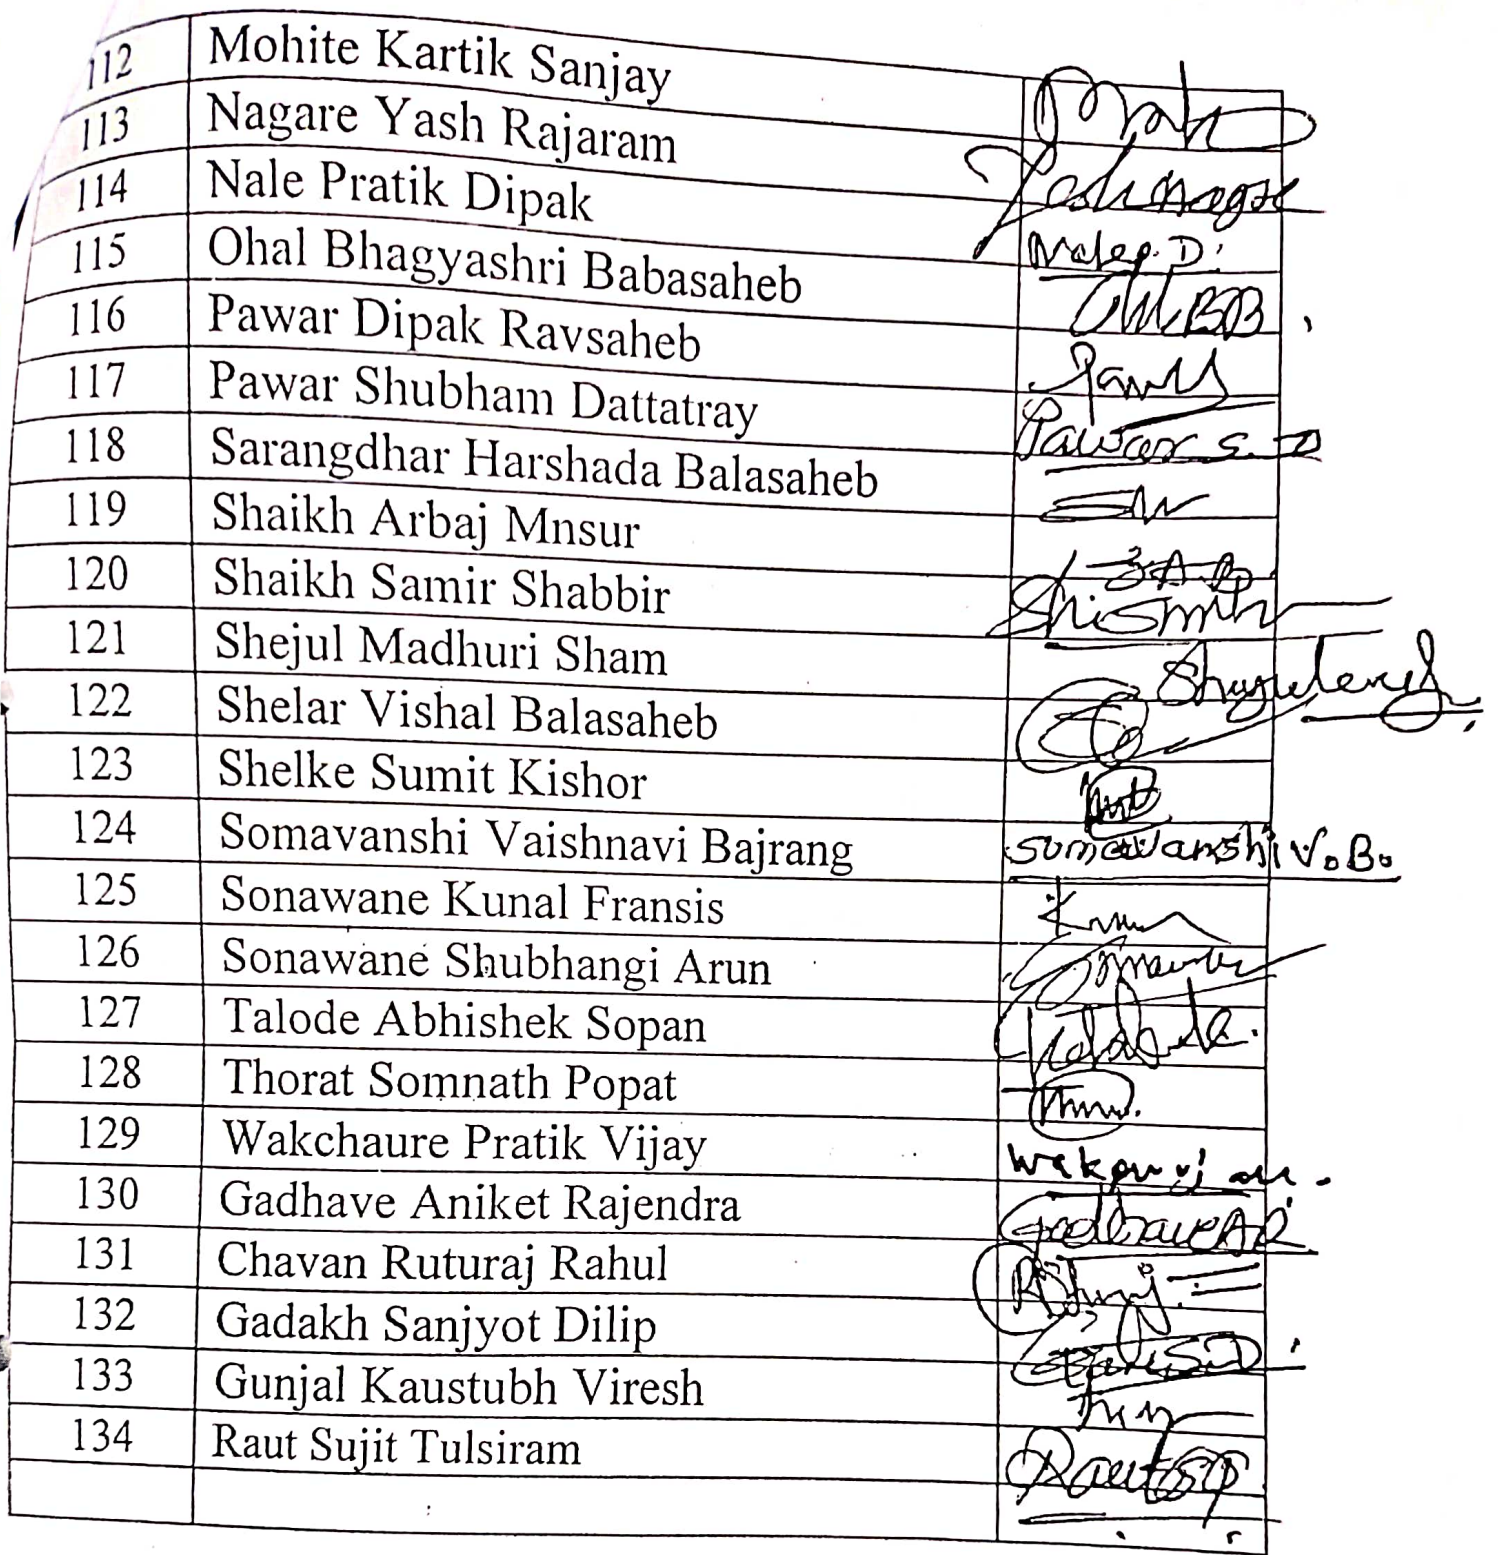 112 Mohite Kartik Sanjay
113 Nagare Yash Rajaram
114 Nale Pratik Dipak Nalep. D.
115 Ohal Bhagyashri Babasaheb
116 Pawar Dipak Ravsaheb
117 Pawar Shubham Dattatray Pawar S. D
118 Sarangdhar Harshada Balasaheb
119 Shaikh Arbaj Mnsur
120 Shaikh Samir Shabbir
121 Shejul Madhuri Sham
122 Shelar Vishal Balasaheb
123 Shelke Sumit Kishor
124 Somavanshi Vaishnavi Bajrang Somawanshi V. B.
125 Sonawane Kunal Fransis
126 Sonawane Shubhangi Arun
127 Talode Abhishek Sopan
128 Thorat Somnath Popat
129 Wakchaure Pratik Vijay
130 Gadhave Aniket Rajendra Gadhave A R
131 Chavan Ruturaj Rahul
132 Gadakh Sanjyot Dilip
133 Gunjal Kaustubh Viresh
134 Raut Sujit Tulsiram